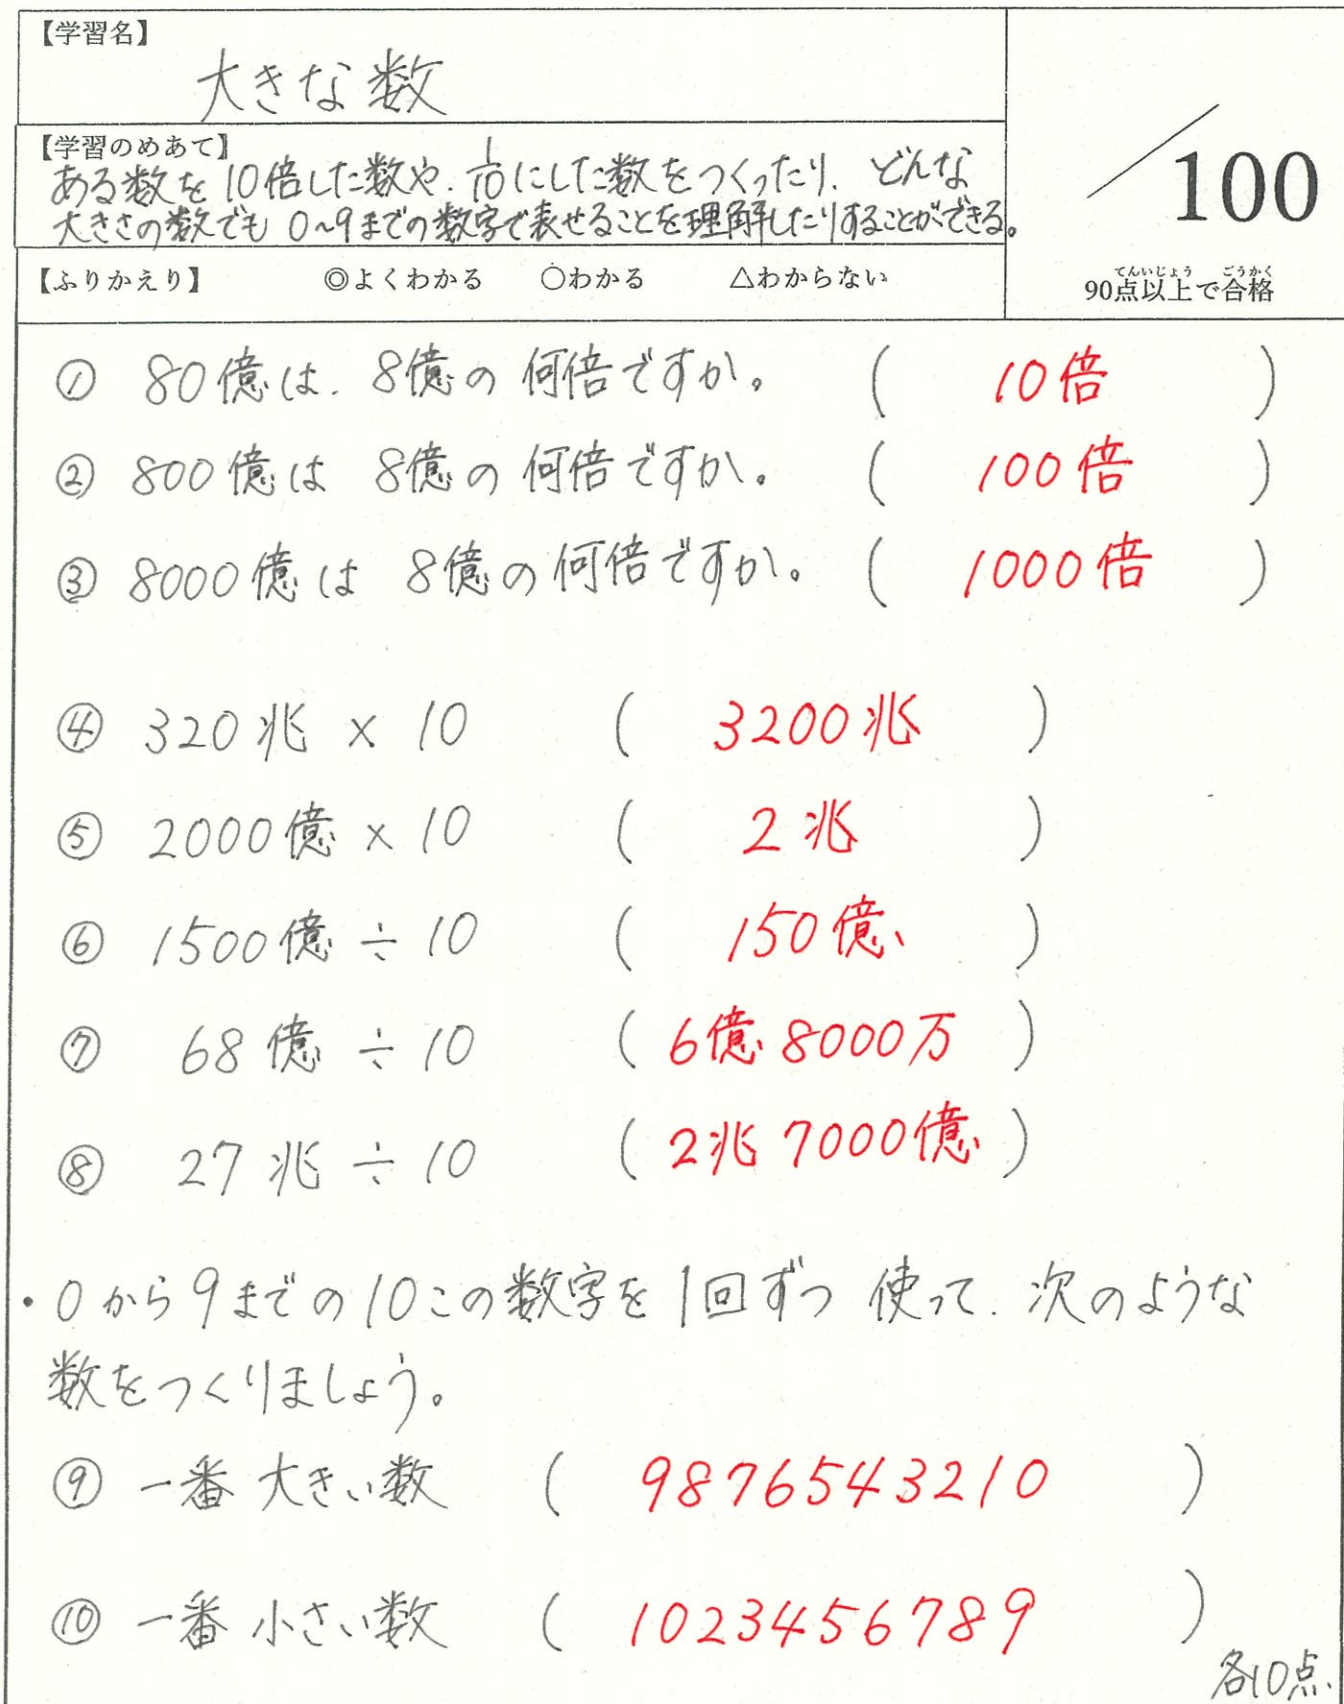 【学習名】
大きな数
【学習のめあて】
ある数を10倍した数や、1/10にした数をつくったり、どんな
大きさの数でも0~9までの数字で表せることを理解したりすることができる。
/100
【ふりかえり】 ◎よくわかる ○わかる △わからない
てんいじょう ごうかく
90点以上で合格
① 80億は、8億の何倍ですか。 ( 10倍 )
② 800億は 8億の何倍ですか。 ( 100倍 )
③ 8000億は 8億の何倍ですか。 ( 1000倍 )
④ 320兆 × 10 ( 3200兆 )
⑤ 2000億 × 10 ( 2兆 )
⑥ 1500億 ÷ 10 ( 150億 )
⑦ 68億 ÷ 10 ( 6億8000万 )
⑧ 27兆 ÷ 10 ( 2兆7000億 )
・0から9までの10この数字を1回ずつ使って、次のような
数をつくりましょう。
⑨ 一番大きい数 ( 9876543210 )
⑩ 一番小さい数 ( 1023456789 )
各10点、